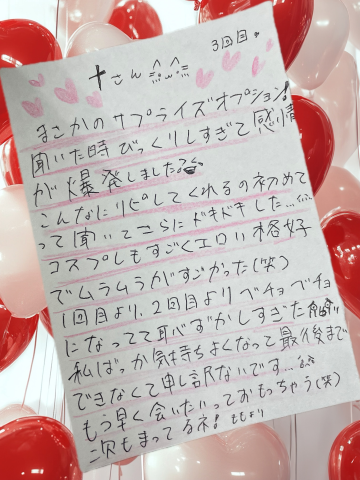 3回目。
†さん
まさかのサプライズオプション!
聞いた時びっくりしすぎて感情
が爆発しました
こんなにリピしてくれるの初めて
って聞いてさらにドキドキした…
コスプレもすごくエロい格好
でムラムラがすごかった(笑)
1回目より、2回目よりベチョベチョ
になってて恥ずかしすぎた
私ばっか気持ちよくなって最後まで
できなくて申し訳ないです…
もう早く会いたいっておもっちゃう(笑)
次もまってるネ! ももより